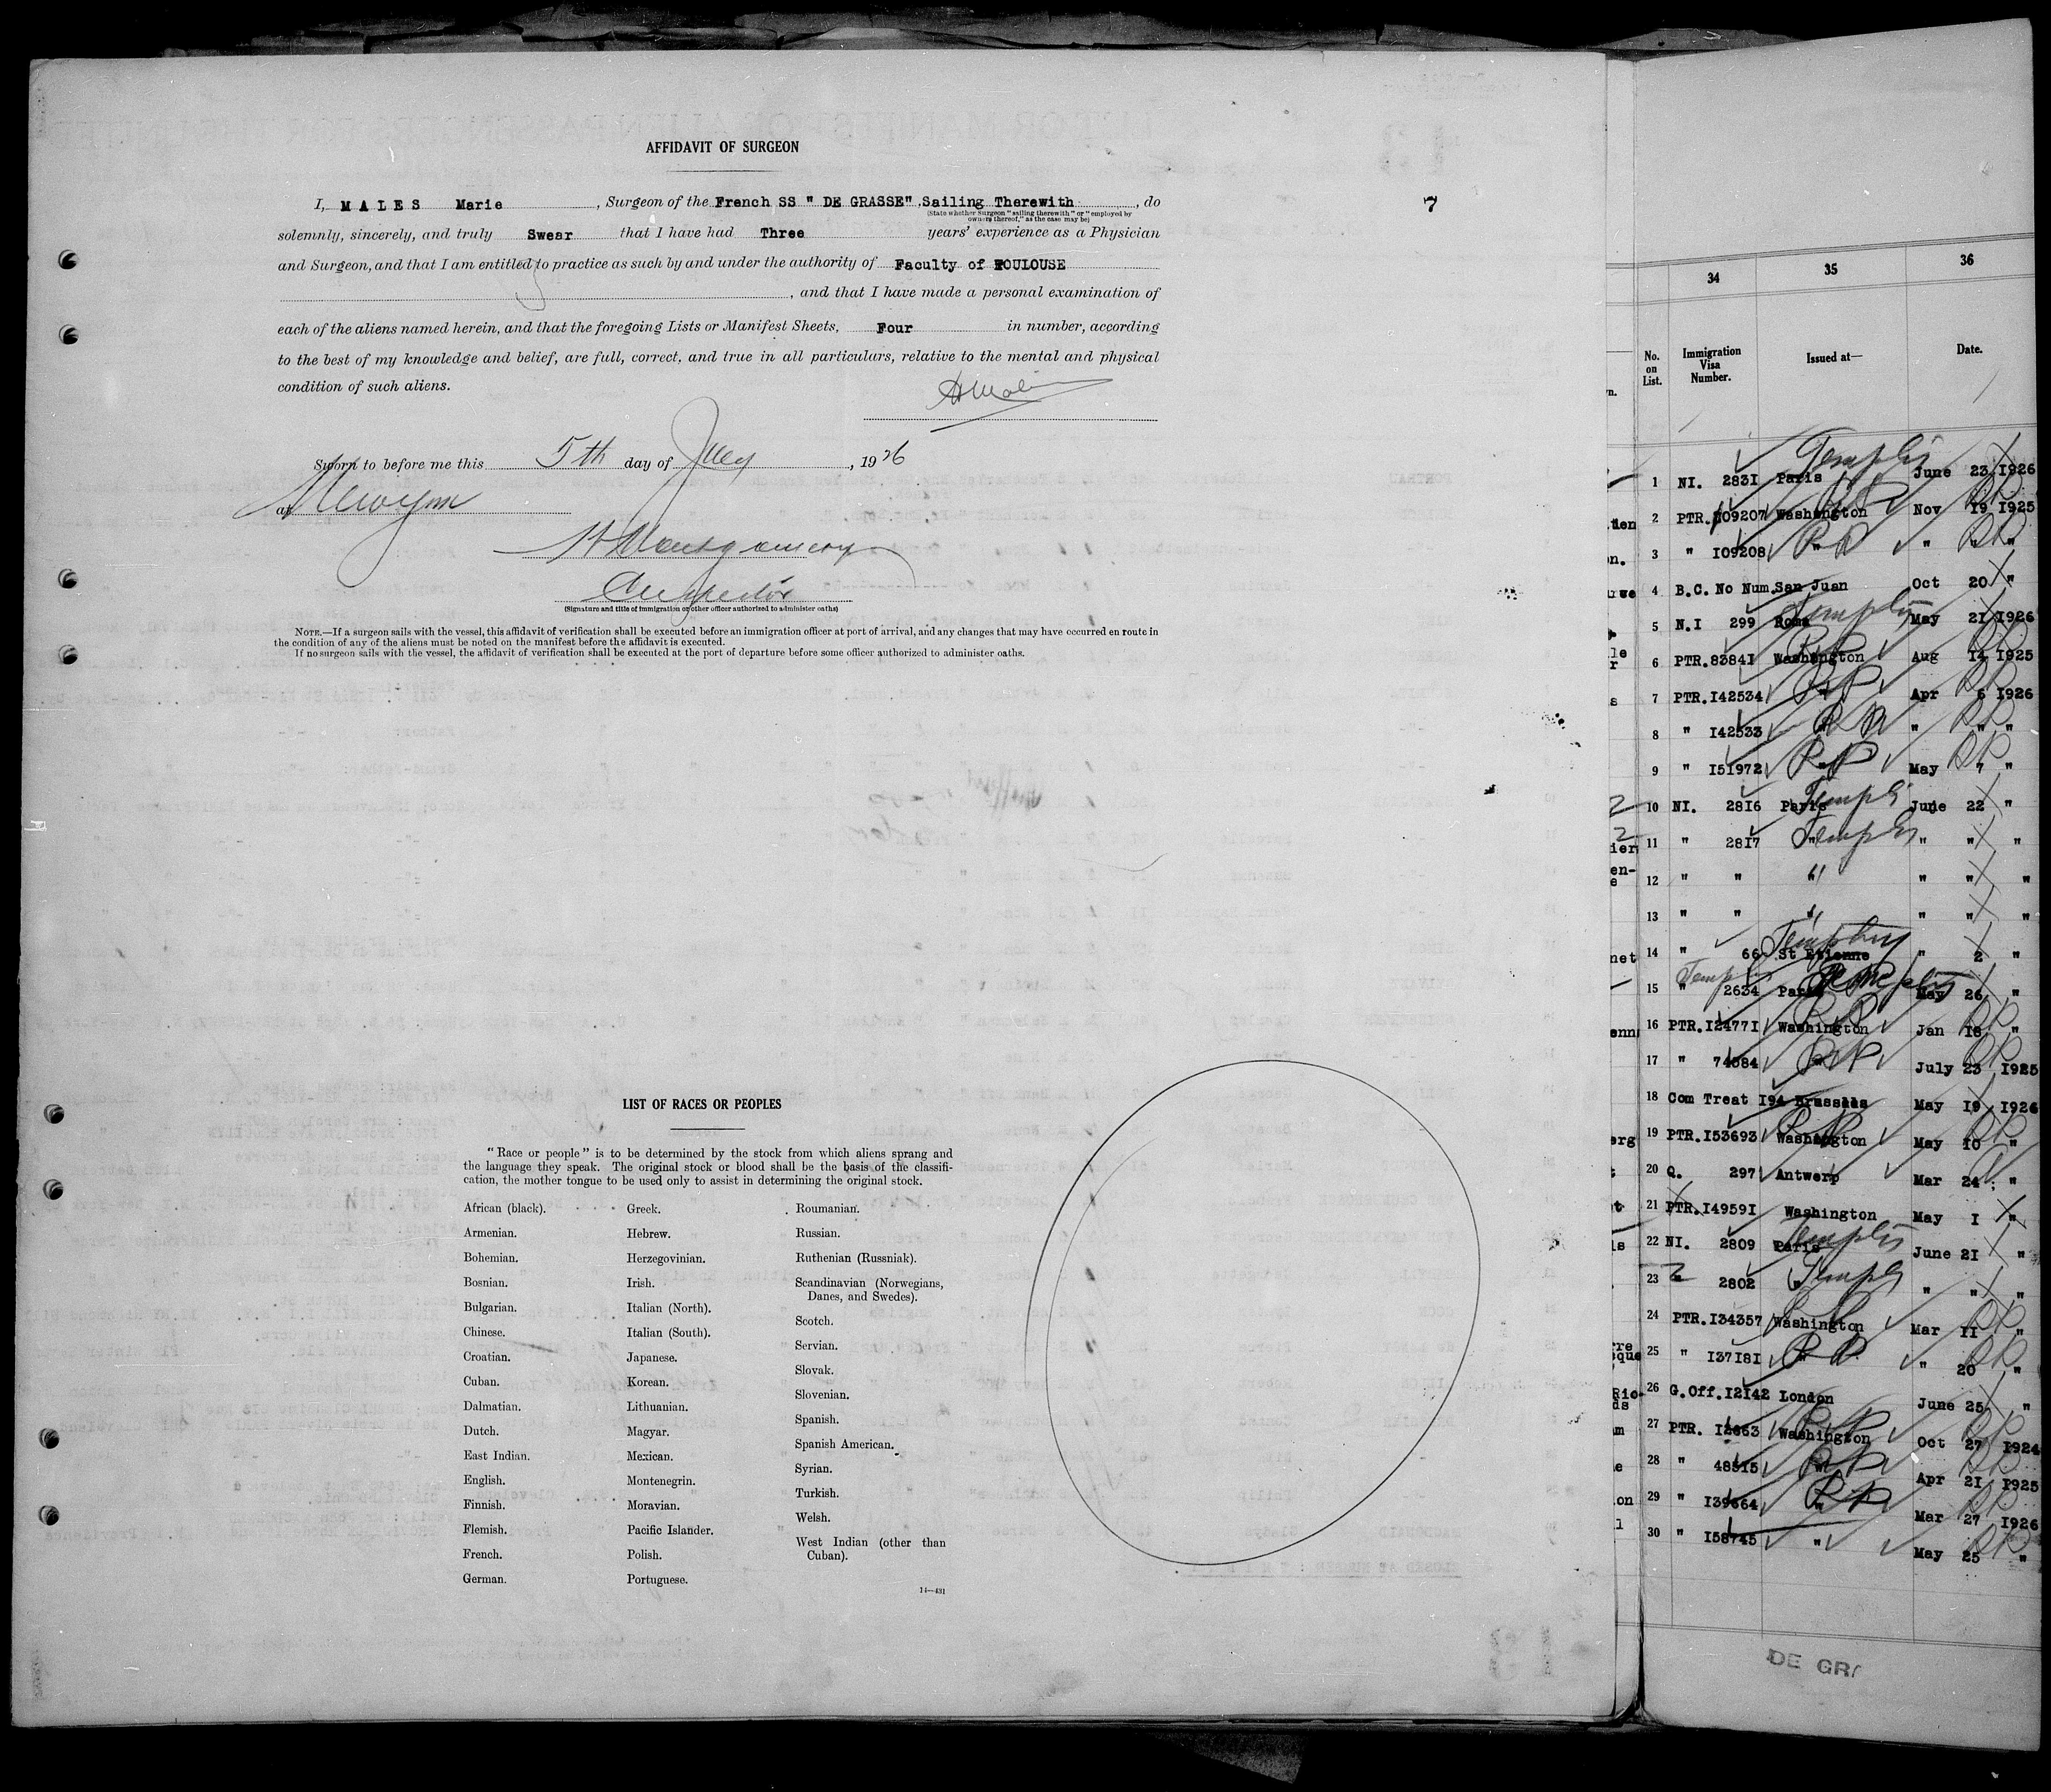 AFFIDAVIT OF SURGEON
I, MALES Marie, Surgeon of the French SS " DE GRASSE" Sailing Therewith, do
(State whether Surgeon "sailing therewith" or "employed by
owners thereof," as the case may be)
7
solemnly, sincerely, and truly Swear that I have had Three years' experience as a Physician
and Surgeon, and that I am entitled to practice as such by and under the authority of Faculty of TOULOUSE
, and that I have made a personal examination of
each of the aliens named herein, and that the foregoing Lists or Manifest Sheets, Four in number, according
to the best of my knowledge and belief, are full, correct, and true in all particulars, relative to the mental and physical
condition of such aliens.
Sworn to before me this 5th day of July, 1926
at
Inspector
(Signature and title of immigration or other officer authorized to administer oaths)
NOTE.—If a surgeon sails with the vessel, this affidavit of verification shall be executed before an immigration officer at port of arrival, and any changes that may have occurred en route in
the condition of any of the aliens must be noted on the manifest before the affidavit is executed.
If no surgeon sails with the vessel, the affidavit of verification shall be executed at the port of departure before some officer authorized to administer oaths.
LIST OF RACES OR PEOPLES
"Race or people" is to be determined by the stock from which aliens sprang and
the language they speak. The original stock or blood shall be the basis of the classifi-
cation, the mother tongue to be used only to assist in determining the original stock.
African (black).
Armenian.
Bohemian.
Bosnian.
Bulgarian.
Chinese.
Croatian.
Cuban.
Dalmatian.
Dutch.
East Indian.
English.
Finnish.
Flemish.
French.
German.
Greek.
Hebrew.
Herzegovinian.
Irish.
Italian (North).
Italian (South).
Japanese.
Korean.
Lithuanian.
Magyar.
Mexican.
Montenegrin.
Moravian.
Pacific Islander.
Polish.
Portuguese.
Roumanian.
Russian.
Ruthenian (Russniak).
Scandinavian (Norwegians,
Danes, and Swedes).
Scotch.
Servian.
Slovak.
Slovenian.
Spanish.
Spanish American.
Syrian.
Turkish.
Welsh.
West Indian (other than
Cuban).
14—431
34 35 36
No. on List. Immigration Visa Number. Issued at— Date.
1 NI. 2831 Paris June 23 1926
2 PTR. 109207 Washington Nov 19 1925
3 " 109208 " " " "
4 B.C. No Num. San Juan Oct 20 "
5 N.I 299 Rome May 21 1926
6 PTR. 83841 Washington Aug 14 1925
7 PTR. 142534 " Apr 6 1926
8 " 142533 " " " "
9 " 151972 " May 7 "
10 NI. 2816 Paris June 22 "
11 " 2817 " " " "
12 " " " " " "
13 " " " " " "
14 " 66 St Etienne " 2 "
15 " 2634 Paris May 26 "
16 PTR. 124771 Washington Jan 18 "
17 " 74384 " July 23 1925
18 Com Treat 194 Brussels May 19 1926
19 PTR. 153693 Washington May 10 "
20 Q. 297 Antwerp Mar 24 "
21 PTR. 149591 Washington May 1 "
22 NI. 2809 Paris June 21 "
23 " 2802 " " " "
24 PTR. 134357 Washington Mar 11 "
25 " 137181 " " 20 "
26 G.Off. 12142 London June 25 "
27 PTR. 12663 Washington Oct 27 1924
28 " 48515 " Apr 21 1925
29 " 139664 " Mar 27 1926
30 " 158745 " May 25 "
DE GRA